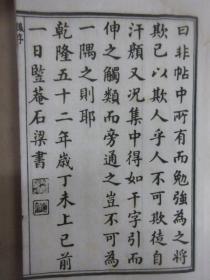 曰非帖中所有而勉強為之將
欺已以欺人乎人不可欺徒自
汗顏又况集中得如干字引而
伸之觸類而旁通之豈不可為
一隅之則耶
乾隆五十二年歲丁未上巳前
一日豎菴石梁書